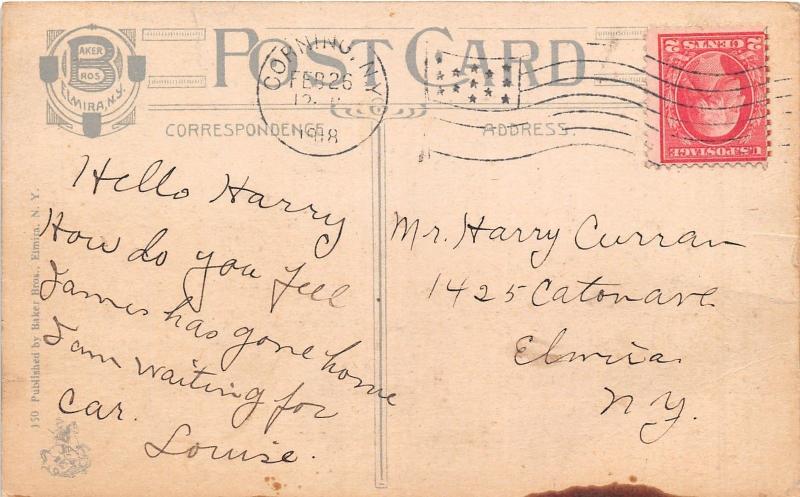 BAKER
BROS
ELMIRA, N.Y.
POST CARD
CORNING, N.Y.
FEB 26
1918
2 CENTS 2
U.S. POSTAGE
CORRESPONDENCE
ADDRESS.
Hello Harry
How do you feel
James has gone home
I am waiting for
car.
Louise.
Mr. Harry Curran
1425 Caton ave
Elmira
N.Y.
150 Published by Baker Bros., Elmira, N. Y.